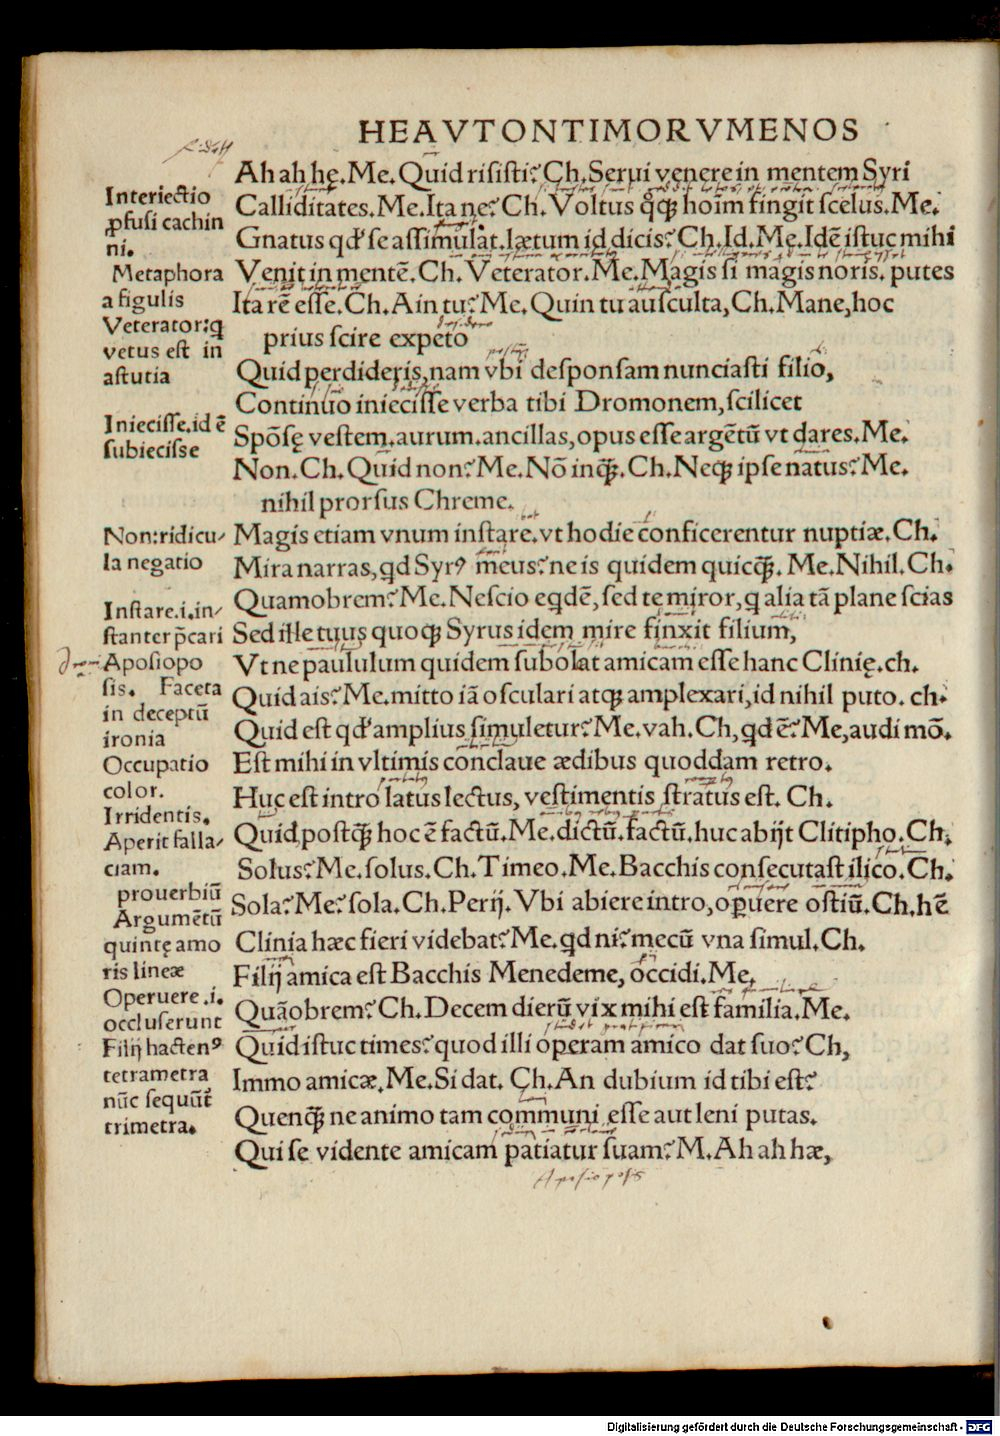 HEAVTONTIMORVMENOS
Ah ah hę. Me. Quid risisti? Ch. Serui venere in mentem Syri
Calliditates. Me. Ita ne? Ch. Voltus qq̃ hoīm fingit scelus. Me.
Gnatus qd' se assimulat. lætum id dicis? Ch. Id. Me. Idē istuc mihi
Venit in mentē. Ch. Veterator. Me. Magis si magis noris. putes
Ita rē esse. Ch. Ain tu? Me. Quin tu ausculta, Ch. Mane, hoc
prius scire expeto
Quid perdideris, nam vbi desponsam nunciasti filio,
Continuo iniecisse verba tibi Dromonem, scilicet
Spōsę vestem. aurum. ancillas, opus esse argētū vt dares. Me.
Non. Ch. Quid non? Me. Nō inq̃. Ch. Neq; ipse natus? Me.
nihil prorsus Chreme.
Magis etiam vnum instare. vt hodie conficerentur nuptiæ. Ch.
Mira narras, qd Syrꝰ meus? ne is quidem quicq̃. Me. Nihil. Ch.
Quamobrem? Me. Nescio eqdē, sed te miror, q alia tā plane scias
Sed ille tuus quoq; Syrus idem mire finxit filium,
Vt ne paululum quidem subolat amicam esse hanc Clinię. ch.
Quid ais? Me. mitto iā osculari atq; amplexari, id nihil puto. ch.
Quid est qd' amplius simuletur? Me. vah. Ch, qd ē? Me, audi mō.
Est mihi in vltimis conclaue ædibus quoddam retro.
Huc est intro latus lectus, vestimentis stratus est. Ch.
Quid, postq̃ hoc ē factū. Me. dictū. factū. huc abijt Clitipho. Ch.
Solus? Me. solus. Ch. Timeo. Me. Bacchis consecutast ilico. Ch.
Sola? Me? sola. Ch. Perij. Vbi abiere intro, oꝑuere ostiū. Ch. hē
Clinia hæc fieri videbat? Me. qd ni? mecū vna simul. Ch.
Filij amica est Bacchis Menedeme, occidi. Me.
Quāobrem? Ch. Decem dierū vix mihi est familia. Me.
Quid istuc times? quod illi operam amico dat suo? Ch,
Immo amicæ. Me. Si dat. Ch. An dubium id tibi est?
Quenq̃ ne animo tam communi esse aut leni putas.
Qui se vidente amicam patiatur suam? M. Ah ah hæ,
Aposiopesis
Interiectio
ꝓfusi cachin
ni.
Metaphora
a figulis
Veterator: q
vetus est in
astutia
Iniecisse. id ē
subiecisse
Non: ridicu/
la negatio
Instare. i. in/
stanter p̄cari
Aposiopo
sis. Faceta
in deceptū
ironia
Occupatio
color.
Irridentis.
Aperit falla/
ciam.
prouerbiū
Argumētū
quintę amo
ris lineæ
Operuere .i.
occluserunt
Filij hactenꝰ
tetrametra
nūc sequūt̃
trimetra.
Digitalisierung gefördert durch die Deutsche Forschungsgemeinschaft - DFG